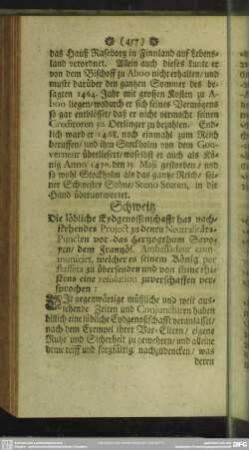 (417)
das Hauß Raseborg in Finnland auf Lebens-
land verordnet. Allein auch dieses kunte er
von dem Bischoff zu Aboo nicht erhalten / und
muste darüber den gantzen Sommer des be-
sagten 1464. Jahr mit grossen Kosten zu A-
boo liegen / wodurch er sich seines Vermögens
so gar entblösset / daß er nicht vermocht seinen
Creditoren zu bezahlen. End-
lich ward er 1468. noch einmahl zum Reich
beruffen / und ihm Stockholm von dem Gou-
verneur überliefert / woselbst er auch als Kö-
nig Anno 1470. den 15. Maji gestorben / und
so wohl Stockholm als das gantze Reich / sei-
ner Schwester Sohne / Steno Sturen, in die
Hand überantwortet.
Schweitz
Die löbliche Eydgenossenschafft has nach-
stehendes Project zu denen Neutralitäts-
Puncten vor das Hertzogthum Savo-
yen / dem Frantzös. Ambassadeur com-
municiret, welcher es seinem König per
staffetta zu übersenden und von ihme hier-
uns eine resolution zuverschaffen ver-
sprochen:
gegenwärtige mißliche und weit aus-
sehende Zeiten und Conjuncturen haben
billich eine löbliche Eydgenoßschafft veranlasset /
nach dem Exempel ihrer Vor-Eltern / eigene
Ruhe und Sicherheit zu gewehren / und alleine
reiff und sorgfältig nachzudencken / was
deren